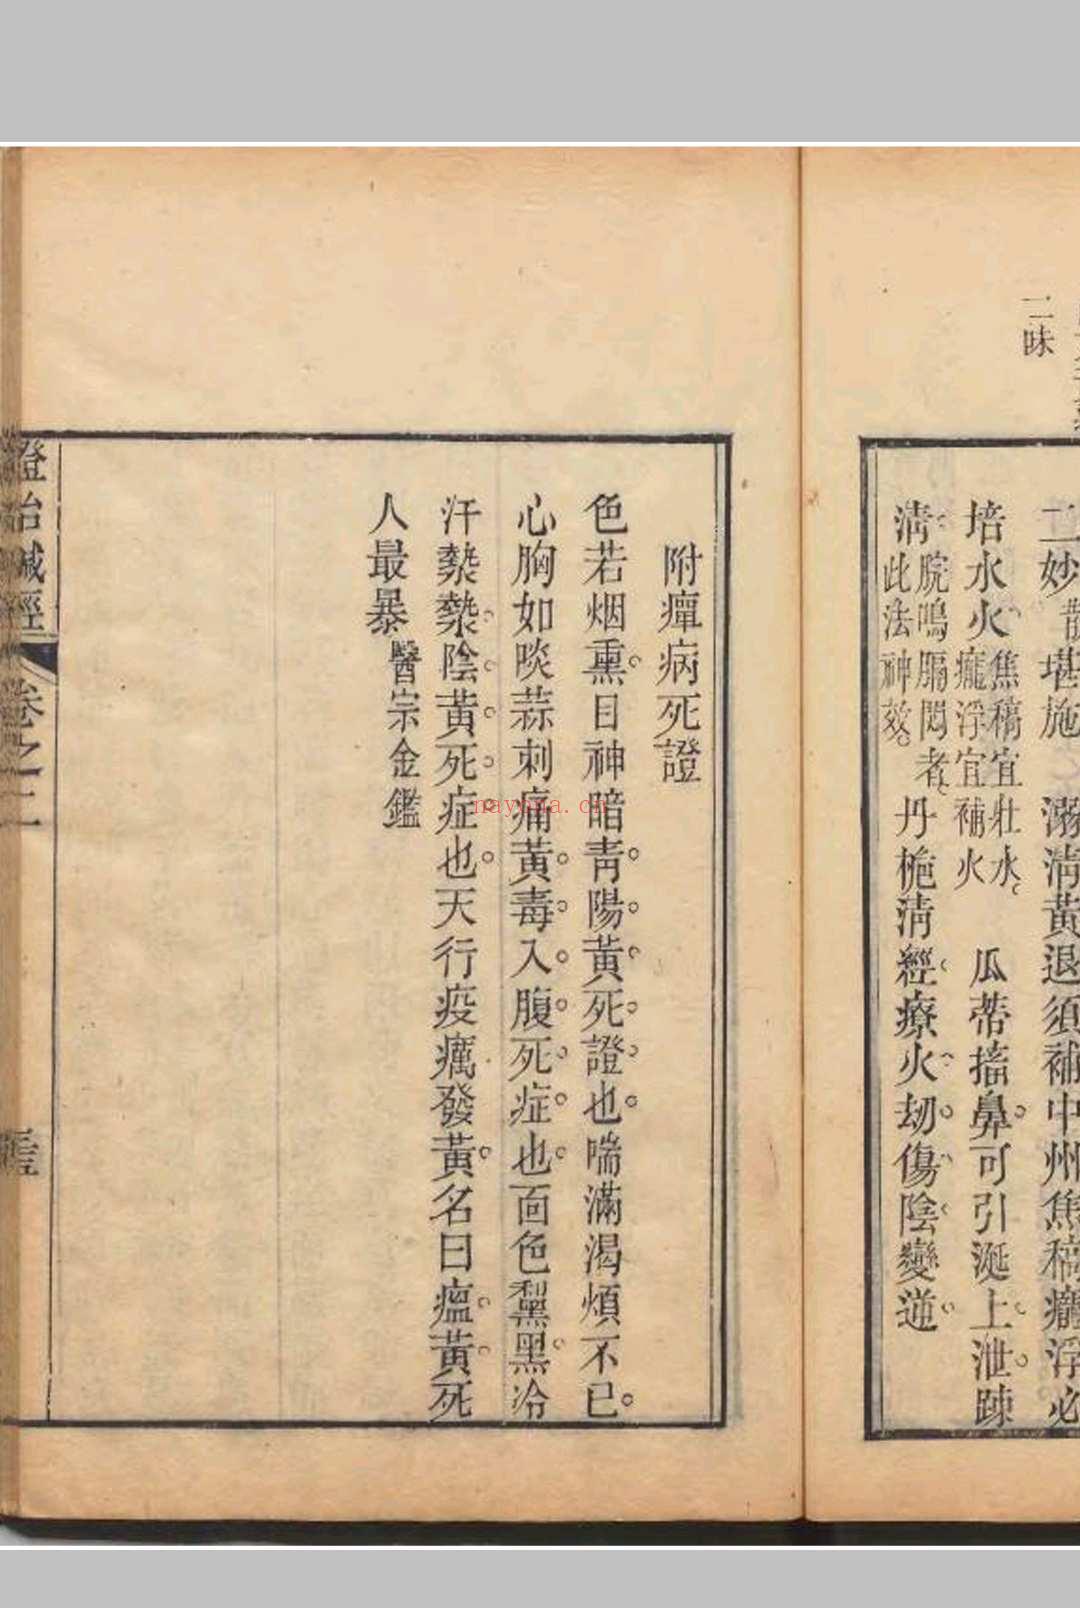 二味
二妙散堪施　溺清黃退須補中州焦稿癃浮必
培水火焦稿宜壯水癃浮宜補火　瓜蒂搐鼻可引涎上泄踈
清脘鳴膈悶者此法神效丹梔清經療火劫傷陰變逆
附癉病死證
色若烟熏目神暗青陽黃死證也喘滿渴煩不已
心胸如啖蒜刺痛黃毒入腹死症也面色黧黑冷
汗漐漐陰黃死症也天行疫癘發黃名曰瘟黃死
人最暴醫宗金鑑
證治鍼經
卷之二
nayona.cn